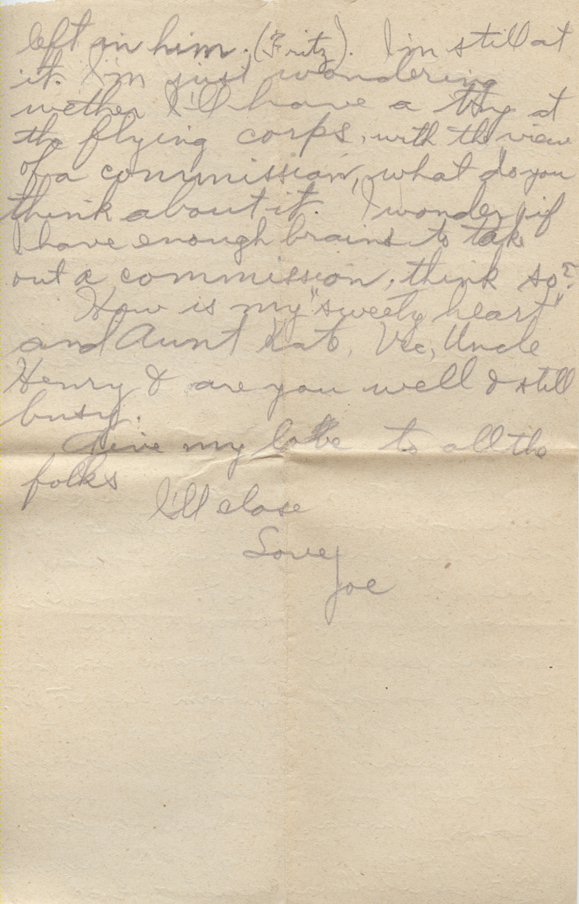 left in him. (Fritz). I'm still at
it. I'm just wondering
wether I'll have a try at
the flying corps, with the view
of a commission, what do you
think about it. I wonder if
I have enough brains to take
out a commission, think so?
How is my "sweety heart"
and Aunt Kate, Vic, Uncle
Henry & are you well & still
busy.
Give my love to all the
folks
I'll close
Love
Joe